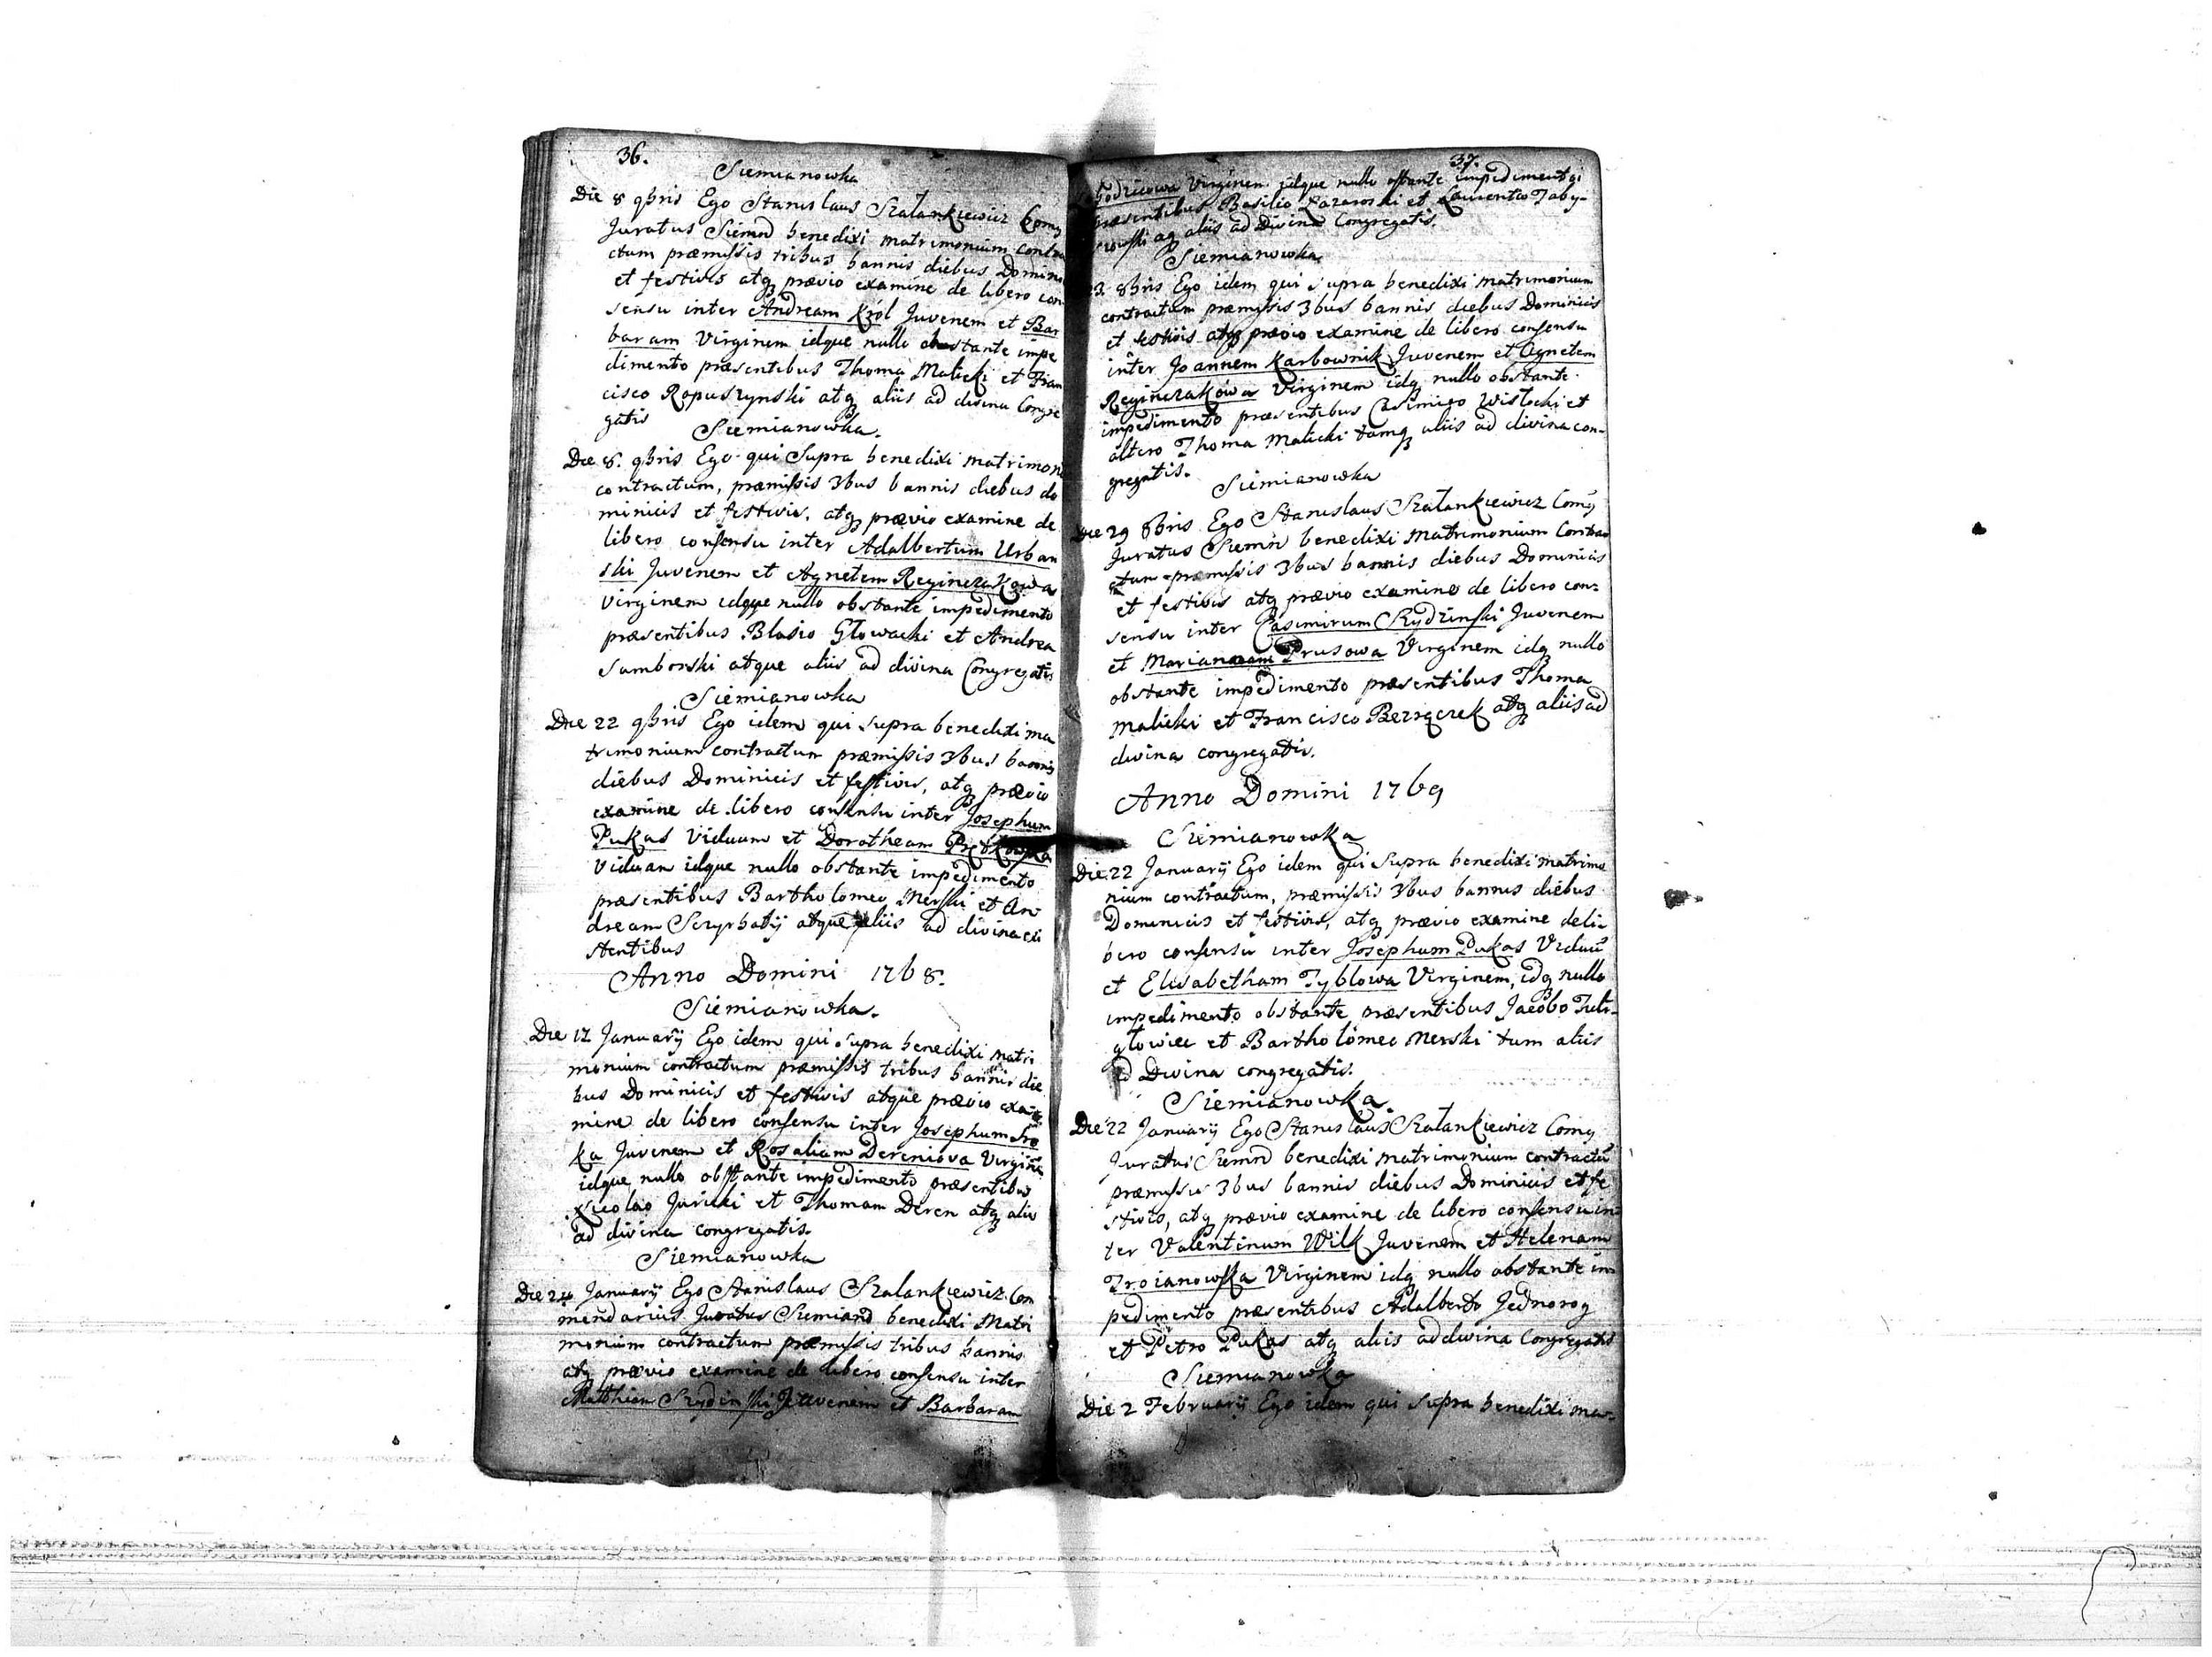 36.
Siemianowka
Die 8 9bris Ego Stanislaus Szałankiewicz Comỹ
Juratus Siemñ benedixi matrimonium contra
ctum præmissis tribus bannis diebus Domini
et festivis atq prævio examine de libero con
sensu inter Andream Krol Juvenem et Bar
baram Virginem idque nullo obstante impe
dimento præsentibus Thoma Malicki et Fran
cisco Ropuszynski atq aliis ad divina Congre
gatis
Siemianowka.
Die 8. 9bris Ego qui Supra benedixi matrimoni
contractum, præmissis 3bus bannis diebus do
minicis et festivis, atq prævio examine de
libero consensu inter Adalbertum Urban
ski Juvenem et Agnetem Reginczakowa
Virginem idque nullo obstante impedimento
præsentibus Blasio Głowacki et Andrea
Samborski atque aliis ad divina Congregatis
Siemianowka
Die 22 9bris Ego idem qui supra benedixi ma
trimonium contractum præmissis 3bus bannis
diebus Dominicis et festivis, atq prævio
examine de libero consensu inter Josephum
Pukas Viduum et Dorotheam
Viduam idque nullo obstante impedimento
præsentibus Bartholomeo Merski et An
dream Szczyrbatÿ atque aliis ad divina exi
stentibus
Anno Domini 1768.
Siemianowka.
Die 17 Januarÿ Ego idem qui supra benedixi matri
monium contractum præmissis tribus bannis die
bus Dominicis et festivis atque prævio exa
mine de libero consensu inter Josephum Sro
ka Juvenem et Rosaliam Dereniova Virginẽ
idque nullo obstante impedimento præsentibus
Nicolao Juricki et Thomam Deren atq aliis
ad divina congregatis.
Siemianowka
Die 24 Januarÿ Ego Stanislaus Szalankiewicz Com
mendarius Juratus Siemianõ benedixi Matri
monium contractum præmissis tribus bannis
atq prævio examine de libero consensu inter
Matthiam Szydinski Juvenem et Barbaram
37.
Virginem idque nullo obstante impedimento
præsentibus Basilio Lazarowski et Laurentio Taby-
atq aliis ad Divina Congregatis.
Siemianowka
23. 8bris Ego idem qui supra benedixi matrimonium
contractum præmissis 3bus bannis diebus Dominicis
et festivis atq prævio examine de libero consensu
inter Joannem Karbownik Juvenem et Agnetem
Reginczakowa Virginem idq nullo obstante
impedimento præsentibus Casimiro Wisłocki et
altero Thoma Malicki tamq aliis ad divina con-
gregatis.
Siemianowka
Die 29 8bris Ego Stanislaus Szałankiewicz Comỹ
Juratus Siemñ benedixi Matrimonium Contra
ctum præmissis 3bus bannis diebus Dominicis
et festivis atq prævio examine de libero con-
sensu inter Casimirum Szydzinski Juvenem
et Mariannam Prusowa Virginem idq nullo
obstante impedimento præsentibus Thoma
Malicki et Francisco Bezręczek atq aliis ad
divina congregatis.
Anno Domini 1769
Siemianowka
Die 22 Januarÿ Ego idem qui Supra benedixi matrimo
nium contractum, præmissis 3bus bannis diebus
Dominicis et festivis, atq prævio examine de li-
bero consensu inter Josephum Pukas Viduũ
et Elisabetham Tyblowa Virginem, idq nullo
impedimento obstante præsentibus Jacobo Tuli-
głowicz et Bartholomeo Merski tum aliis
ad Divina congregatis.
Siemianowka.
Die 22 Januarÿ Ego Stanislaus Szałankiewicz Comỹ
Juratus Siemñ benedixi matrimonium contractũ
præmissis 3bus bannis diebus Dominicis et fe
stivis, atq prævio examine de libero consensu in-
ter Valentinum Wilk Juvenem et Helenam
Troianowska Virginem idq nullo obstante im
pedimento præsentibus Adalberto Jednorog
et Petro Pukas atq aliis ad divina Congregatis
Siemianowka
Die 2 Februarÿ Ego idem qui supra benedixi ma-